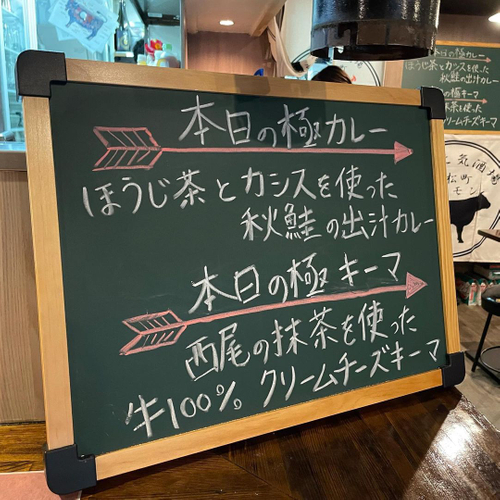 本日の極カレー
ほうじ茶とカシスを使った
秋鮭の出汁カレー
本日の極キーマ
西尾の抹茶を使った
牛100% クリームチーズキーマ
本日の極カレー
ほうじ茶とカシスを使った
秋鮭の出汁カレー
の極キーマ
抹茶を使った
クリームチーズキーマ